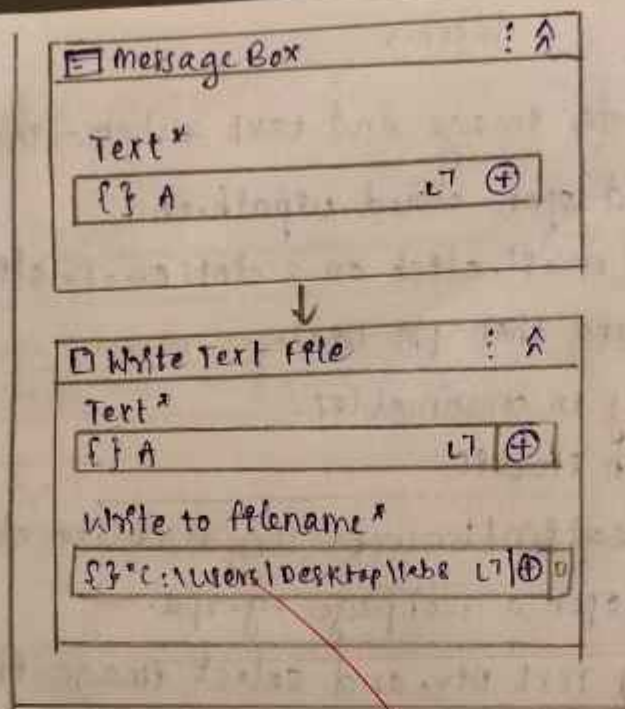 Message Box
Text*
{} A
Write Text File
Text*
{} A
Write to filename*
{} "C:\Users\Desktop\lab8